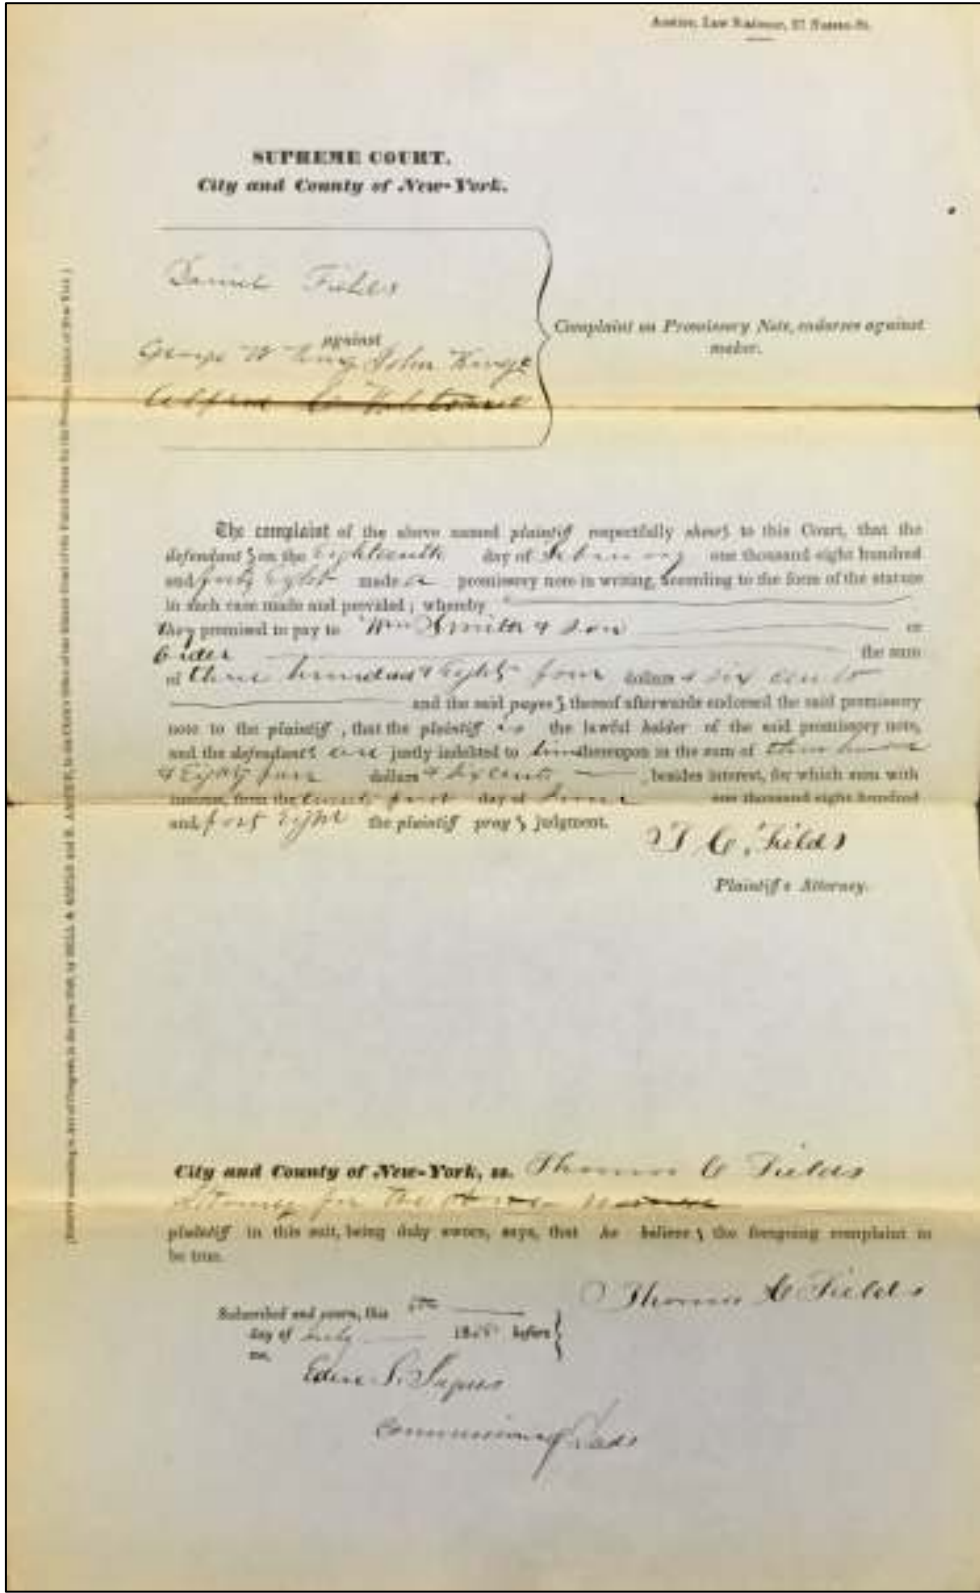 Law Stationer, 27 Nassau-St.
SUPREME COURT.
City and County of New-York.
Daniel Fields
against
George W King John King &
Complaint on Promissory Note, endorsee against
maker.
The complaint of the above named plaintiff respectfully shows to this Court, that the
defendants on the Eighteenth day of February one thousand eight hundred
and forty eight made a promissory note in writing, according to the form of the statute
in such case made and provided; whereby
they promised to pay to Wm Smith & Son or
order the sum
of three hundred & eighty four dollars & six cents
and the said payees thereof afterwards endorsed the said promissory
note to the plaintiff, that the plaintiff is the lawful holder of the said promissory note,
and the defendants are justly indebted to him thereupon in the sum of three
& Eighty four dollars & six cents, besides interest, for which sum with
interest, from the twenty first day of June one thousand eight hundred
and fort eight the plaintiff prays judgment.
T C, Fields
Plaintiff s Attorney.
City and County of New-York, ss. Thomas C Fields
Attorney for the
plaintiff in this suit, being duly sworn, says, that he believes the foregoing complaint to
be true.
Thomas C Fields
Subscribed and sworn, this
day of July 18 before
me,
Commissioner of Deeds